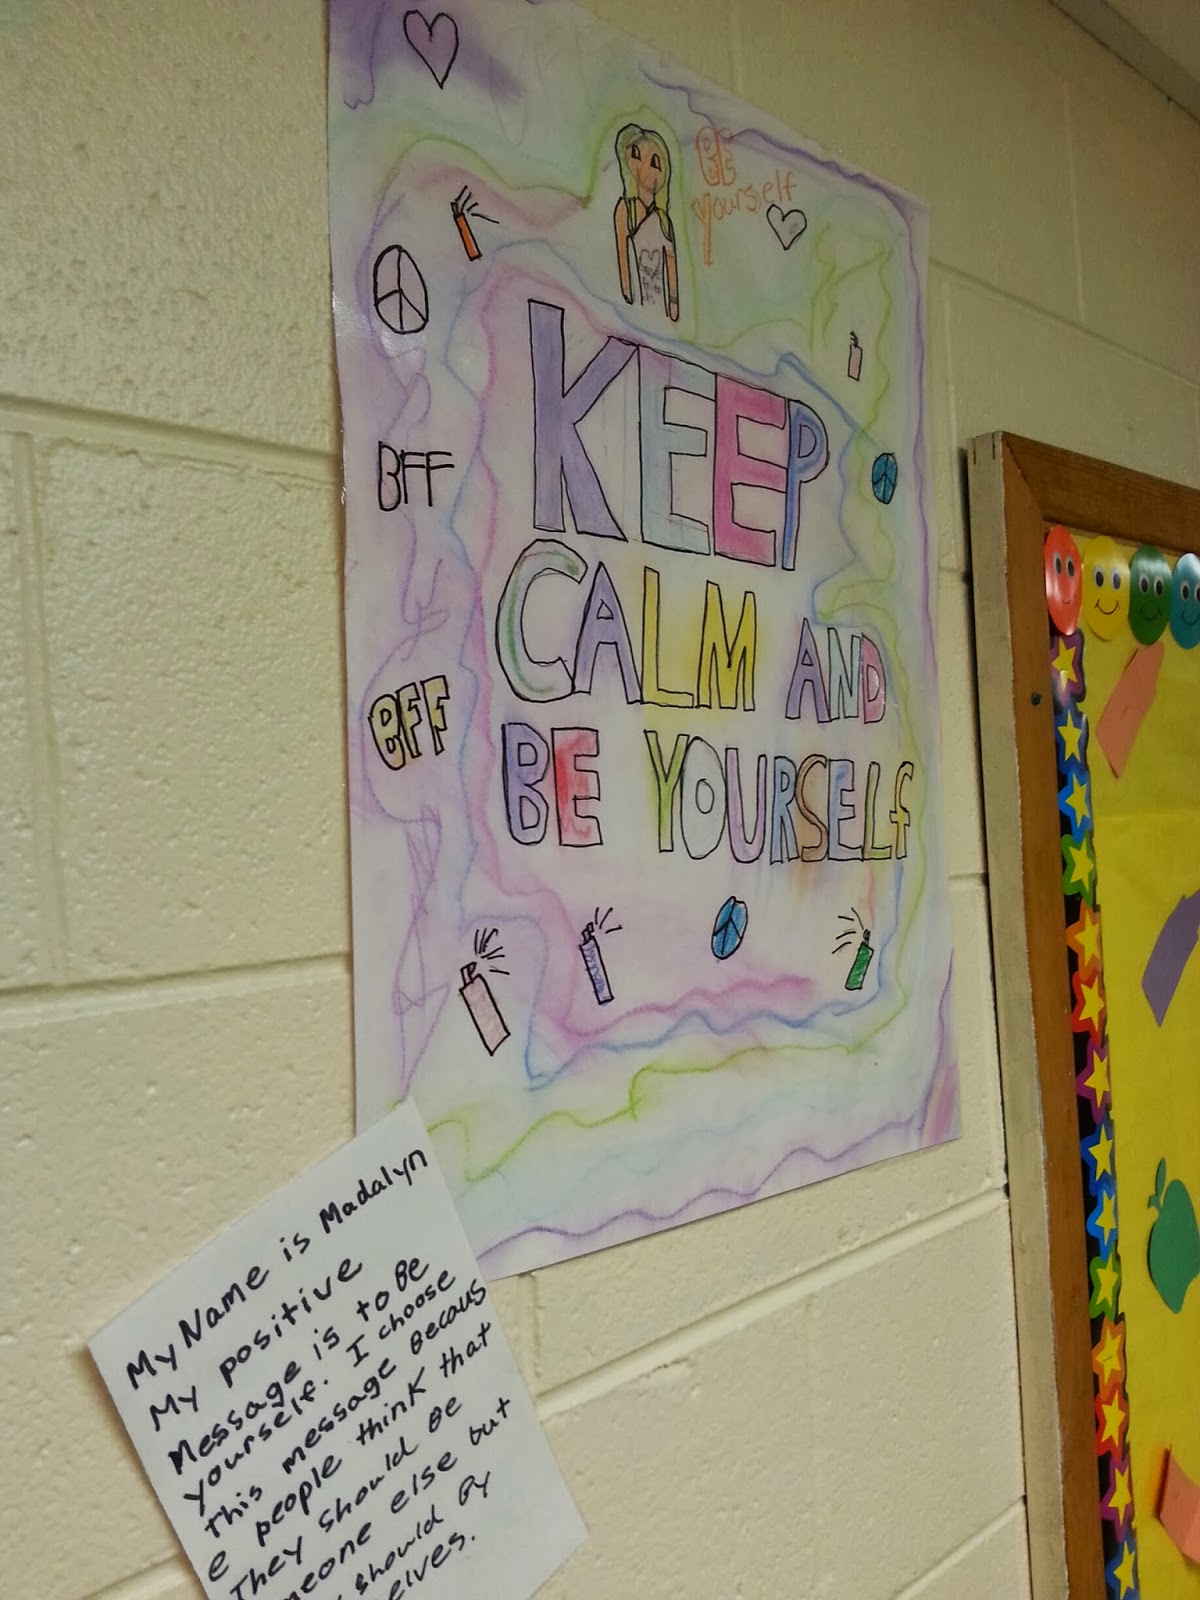 BE
Yourself
KEEP
CALM AND
BE YOURSELf
BFF
BFF
My Name is Madalyn
My positive
Message is to Be
yourself. I choose
this message Becaus
e people think that
They should Be
meone else but
should By
elves.